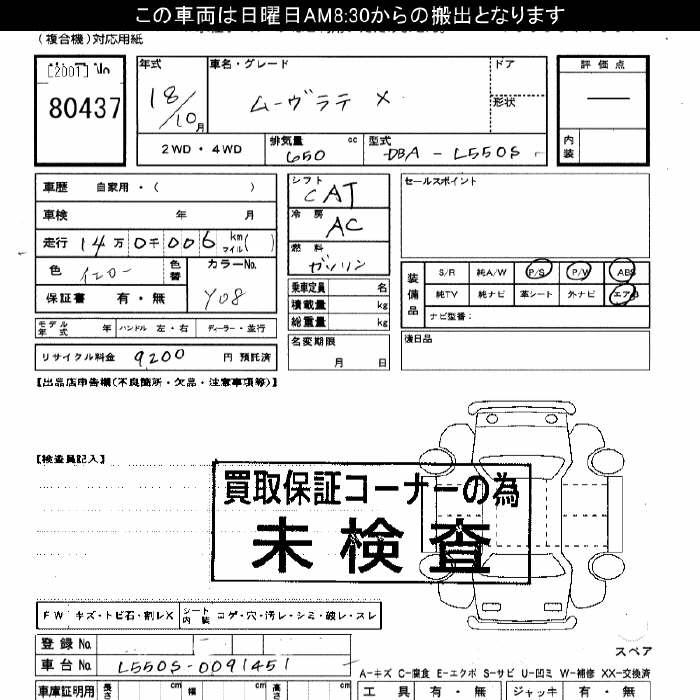 この車両は日曜日AM8:30からの搬出となります
(複合機)対応用紙
80437
年式
18/10月
車名・グレード
ムーヴラテ X
ドア
形状
評価点
―
内装
2WD・4WD
排気量 cc
650
型式
DBA-L550S
車歴 自家用・( )
車検 年 月
走行 14万0千006 km マイル( )
色 イエロー 色替
カラーNo.
Y08
保証書 有・無
モデル年式 年 ハンドル 左・右 ディーラー・並行
リサイクル料金 9200 円 預託済
シフト
CAT
冷房
AC
燃料
ガソリン
乗車定員 名
積載量 kg
総重量 kg
名変期限
月 日
セールスポイント
装備品
S/R 純A/W P/S P/W ABS
純TV 純ナビ 革シート 外ナビ エアB
ナビ型番:
後日品
【出品店申告欄(不良箇所・欠品・注意事項等)】
【検査員記入】
買取保証コーナーの為
未検査
FW キズ・トビ石・割レX
シート内装 コゲ・穴・汚レ・シミ・破レ・スレ
登録No.
車台No. L550S-0091451
スペア
A-キズ C-腐食 E-エクボ S-サビ U-凹ミ W-補修 XX-交換済
車庫証明用 長さ cm 幅 cm 高さ cm
工具 有・無 ジャッキ 有・無